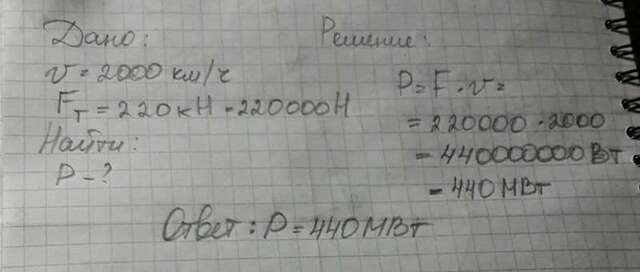 Дано:
Решение:
v = 2000 км/ч
Fт = 220кН = 220000Н
Найти:
P - ?
P = F · v =
= 220000 · 2000
= 440000000Вт
= 440МВт
Ответ: P = 440МВт